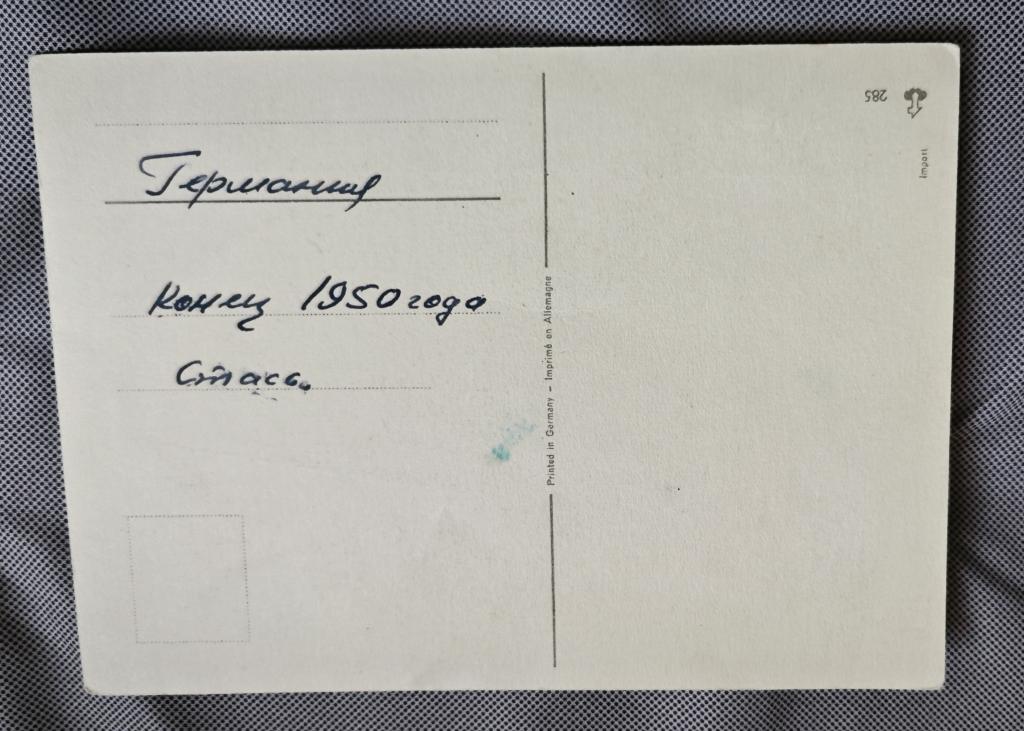 Германия
Конец 1950 года
Стась.
Printed in Germany – Imprimé en Allemagne
285
Import